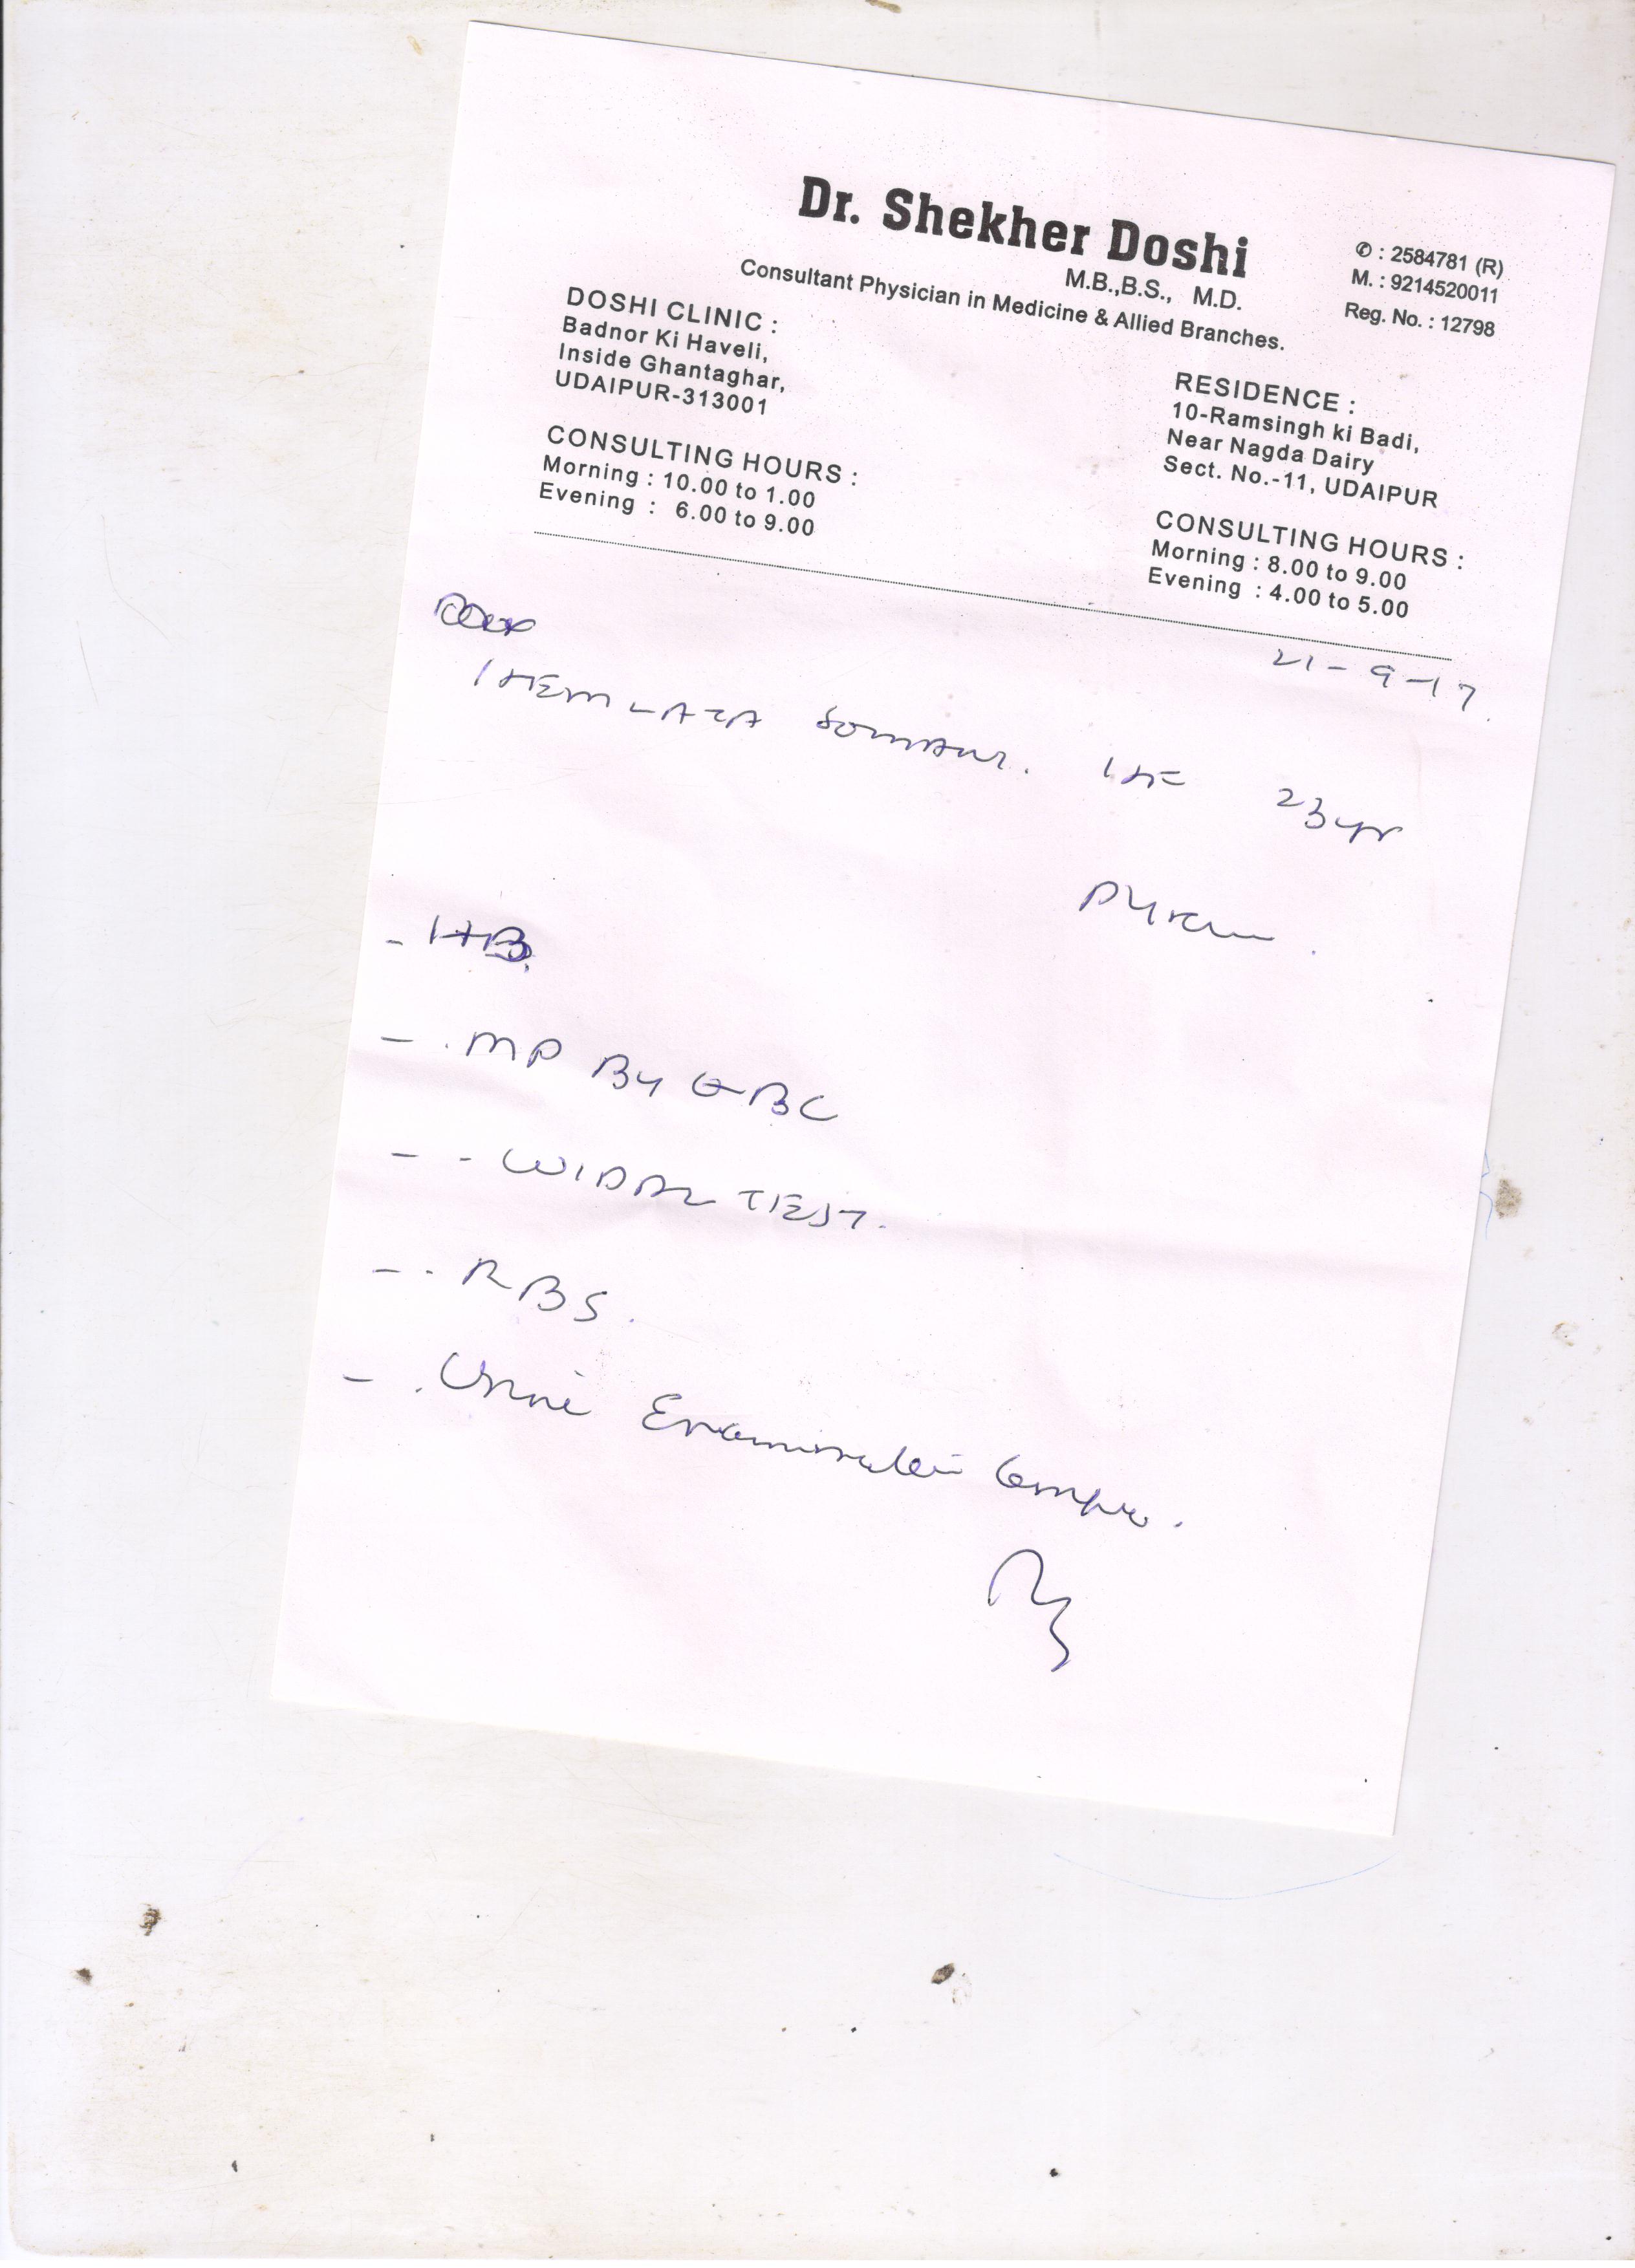 Dr. Shekher Doshi
M.B.,B.S., M.D.
Consultant Physician in Medicine & Allied Branches.
✆ : 2584781 (R)
M. : 9214520011
Reg. No. : 12798
DOSHI CLINIC :
Badnor Ki Haveli,
Inside Ghantaghar,
UDAIPUR-313001
CONSULTING HOURS :
Morning : 10.00 to 1.00
Evening : 6.00 to 9.00
RESIDENCE :
10-Ramsingh ki Badi,
Near Nagda Dairy
Sect. No.-11, UDAIPUR
CONSULTING HOURS :
Morning : 8.00 to 9.00
Evening : 4.00 to 5.00
21-9-17
HEMLATA 23yr
- HB.
- MP By QBC
- WIDAL TEST.
- RBS.
- Urine Examination